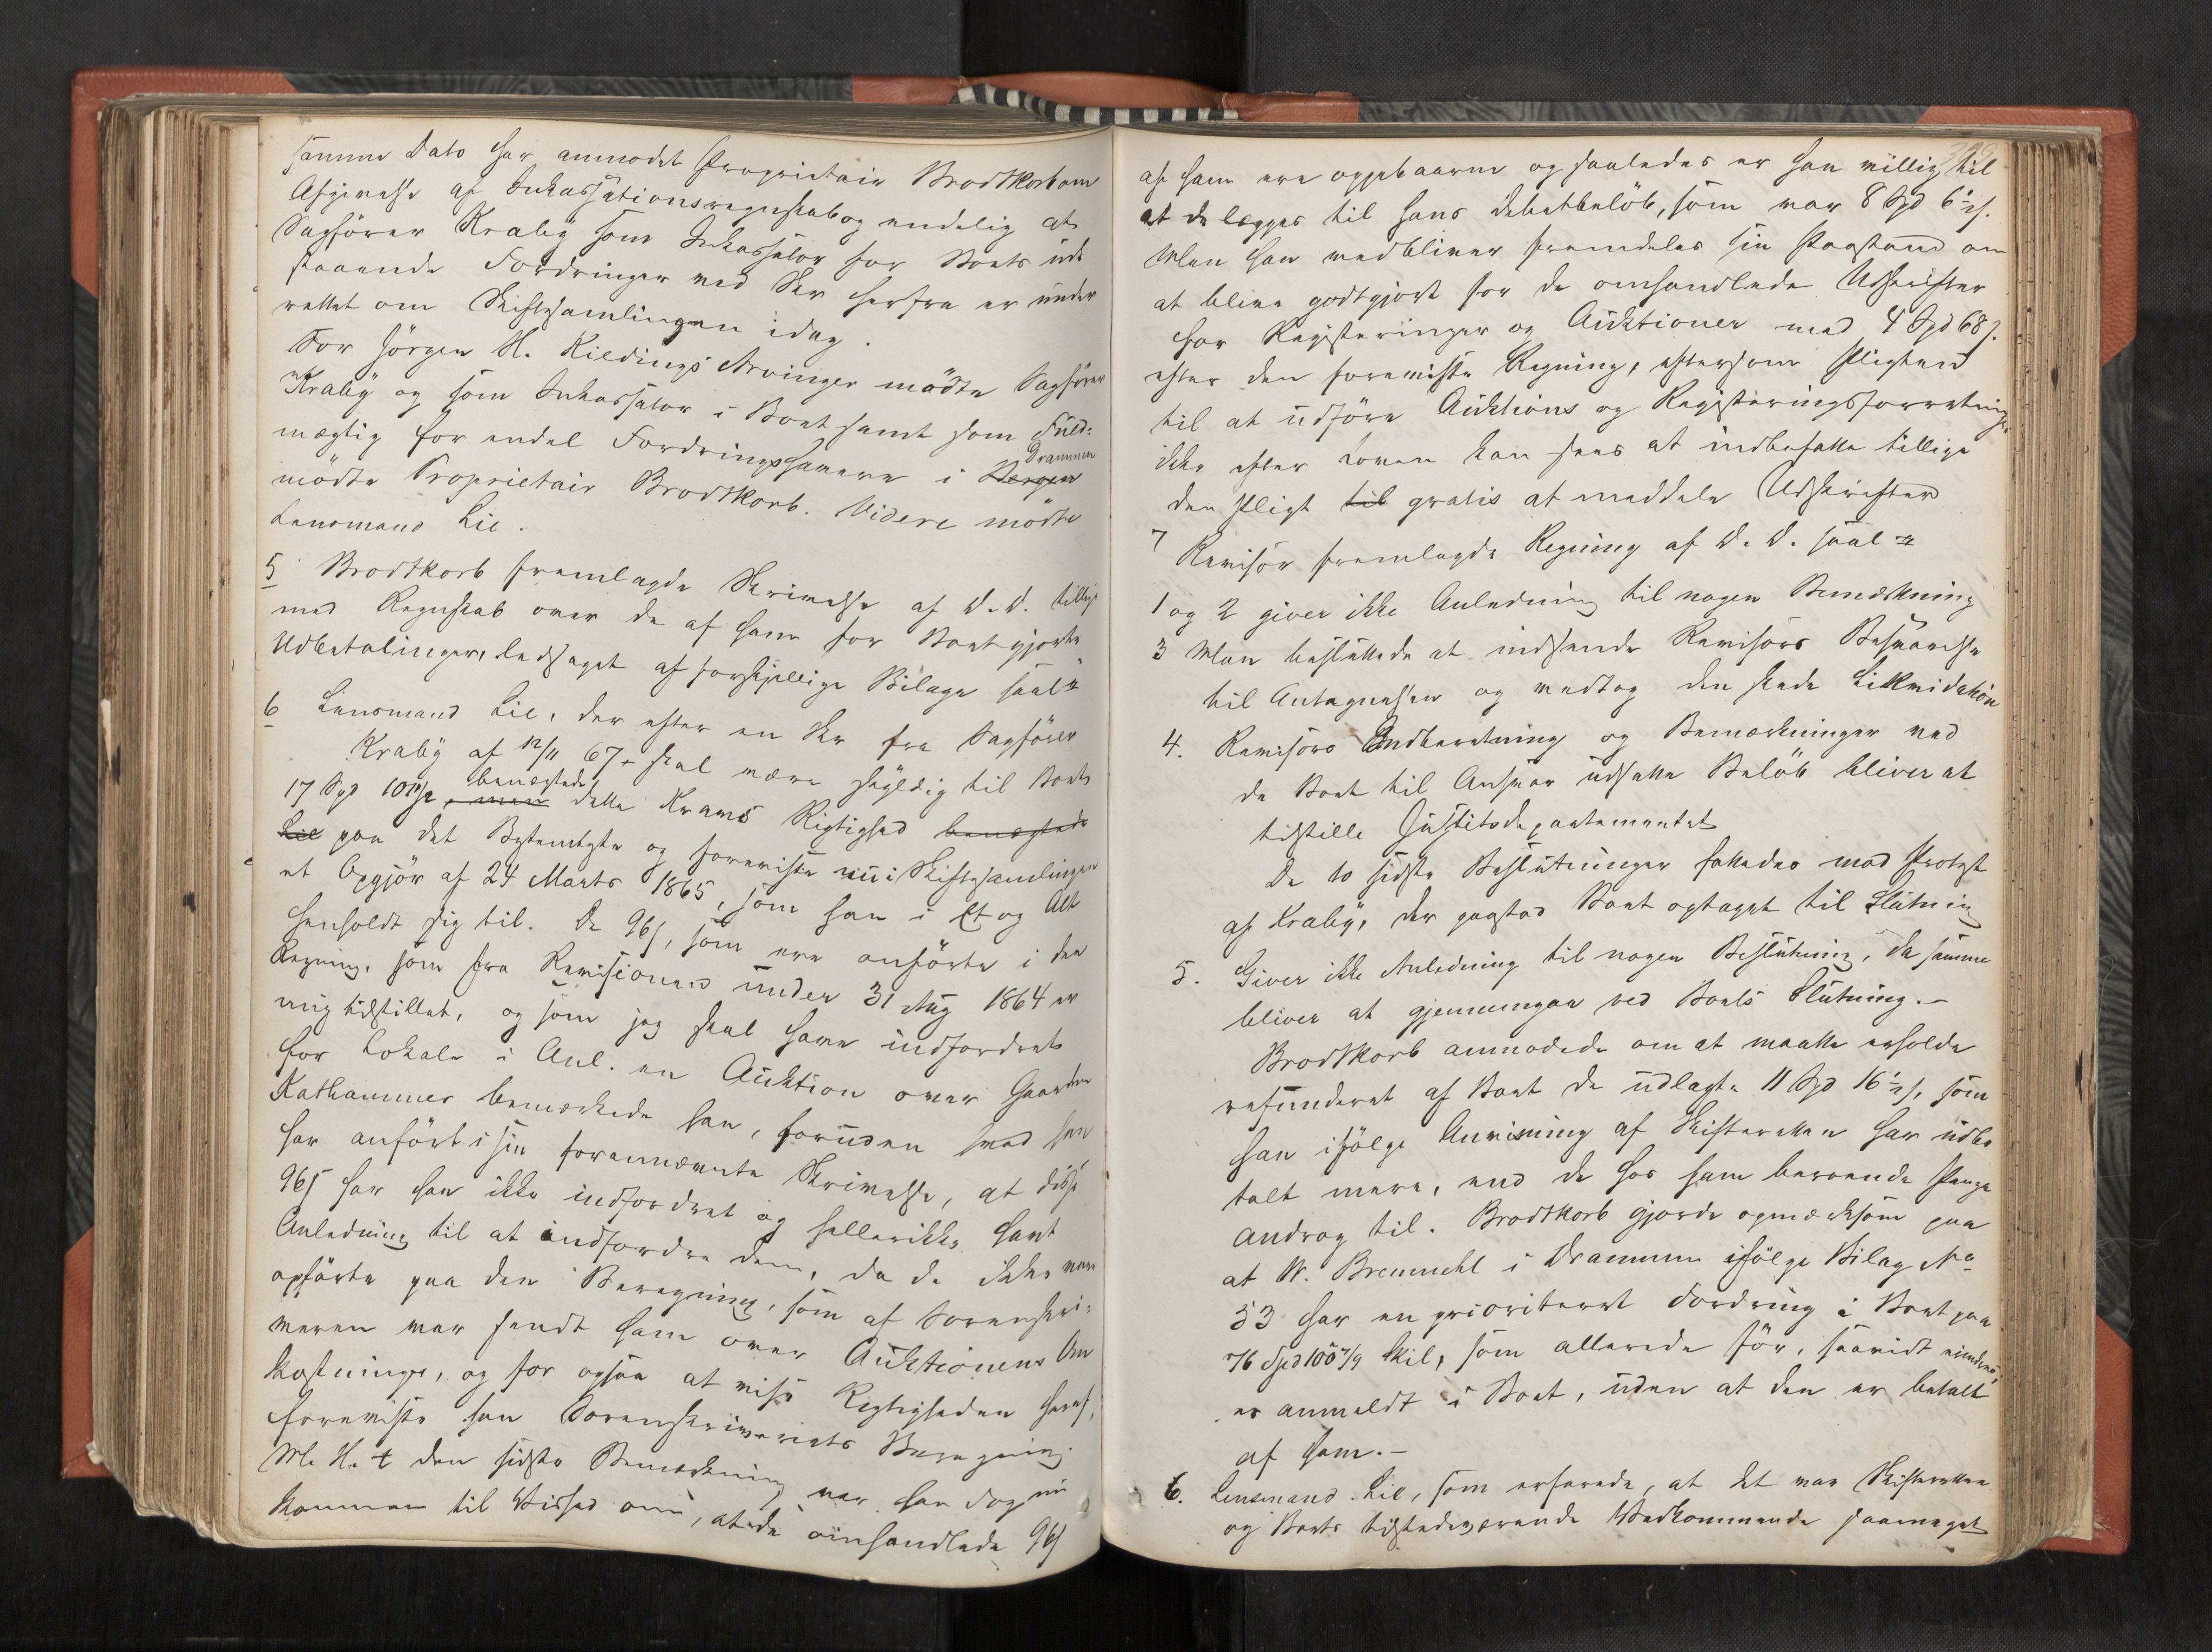 samme Dato har anmodet Proprietair Brodtkorb om
Afgivelse af Inkassationsregnskab og endelig at
Sagförer Kraby som Inkassator for Boets ude
staaende Fordringer ved Skr herfra er under
rettet om Skiftesamlingen idag.
For Jörgen H. Kildings Arvinger mödte Sagförer
Kraby og som Inkassator i Boet samt som Fuld-
mægtig for endel Fordringshavere i Bergen Drammen
mödte Proprietair Brodtkorb. Videre mödte
Lensmand Lie.
5 Brodtkorb fremlagde Skrivelse af D. D. tillige
med Regnskab over de af ham for Boet gjorte
Udbetalinger, ledsaget af forskjellige Bilage saal
6 Lensmand Lie, der efter en Skr fra Sagförer
Kraby af 12/11 67 skal være skyldig til Boet
17 Spd 101 , men benægtede dette Kravs Rigtighed benægtede
Lie paa det Bestemteste og foreviste nu i Skiftesamlingen
et Opgjör af 24 Marts 1865, som han i Et og Alt
henholdt sig til. De 96 s, som ere anförte i den
Regning, som fra Revisionen under 31 Aug 1864 er
mig tilstillet, og som jeg skal have indfordret
for Lokale i Anl. en Auktion over Gaarden
Kathammer bemærkede han, foruden hvad han
har anfört i sin forannævnte Skrivelse, at disse
96 s har han ikke indfordret og heller ikke havt
Anledning til at indfordre dem, da de ikke vare
opförte paa den Beregning, som af Sorenskri-
veren var sendt ham over Auktionens Om
kostninger, og for ogsaa at vise Rigtigheden heraf,
foreviste han Sorenskriveriets Beregning.
M. H. t den sidste Bemærkning var han dog nu
kommen til Vished om, at de omhandlede 96 s
af ham ere oppebaarne og saaledes er han villig til
at de lægges til hans Debetbelöb, som var 8 Spd 6½ s.
Men han vedbliver fremdeles sin Paastand om
at blive godtgjort for de omhandlede Udskrifter
for Registeringer og Auktioner med 4 Spd 68 s.
efter den foreviste Regning, eftersom Pligten
til at udföre Auktions og Registeringsforretninger
ikke efter Loven kan sees at indbefatte tillige
den Pligt til gratis at meddele Udskrifter
7 Revisor fremlagde Regning af D. D. saal
1 og 2 giver ikke Anledning til nogen Bemærkning
3 Man besluttede at indsende Revisors Besvarelse
til Antagnelsen og vedtog den skede Likvidation
4. Revisors Indberetning og Bemærkninger ved
de Boet til Ansvar udsatte Belöb bliver at
tilstille Justitsdepartementet
De to sidste Beslutninger fattedes mod Protest
af Kraby, der paastod Boet optaget til Slutning
5. Giver ikke Anledning til nogen Beslutning, da samme
bliver at gjennemgaa ved Boets Slutning.-
Brodtkorb anmodede om at maatte erholde
refunderet af Boet de udlagte 11 Spd 16½ s, som
han ifölge Anvisning af Skifteretten har udbe
talt mere, end de hos ham beroende Penge
androg til. Brodtkorb gjorde opmærksom paa
at W. Bremnehl i Drammen ifölge Bilag No
53 har en prioriteret Fordring i Boet paa
76 Spd 100 /9 Skil, som allerede för, saavidt vindes,
er anmeldt i Boet, uden at den er betalt
af ham.-
6. Lensmand Lie, som erfarede, at det var Skifteretten
og Boets tilstedeværende Vedkommende saameget